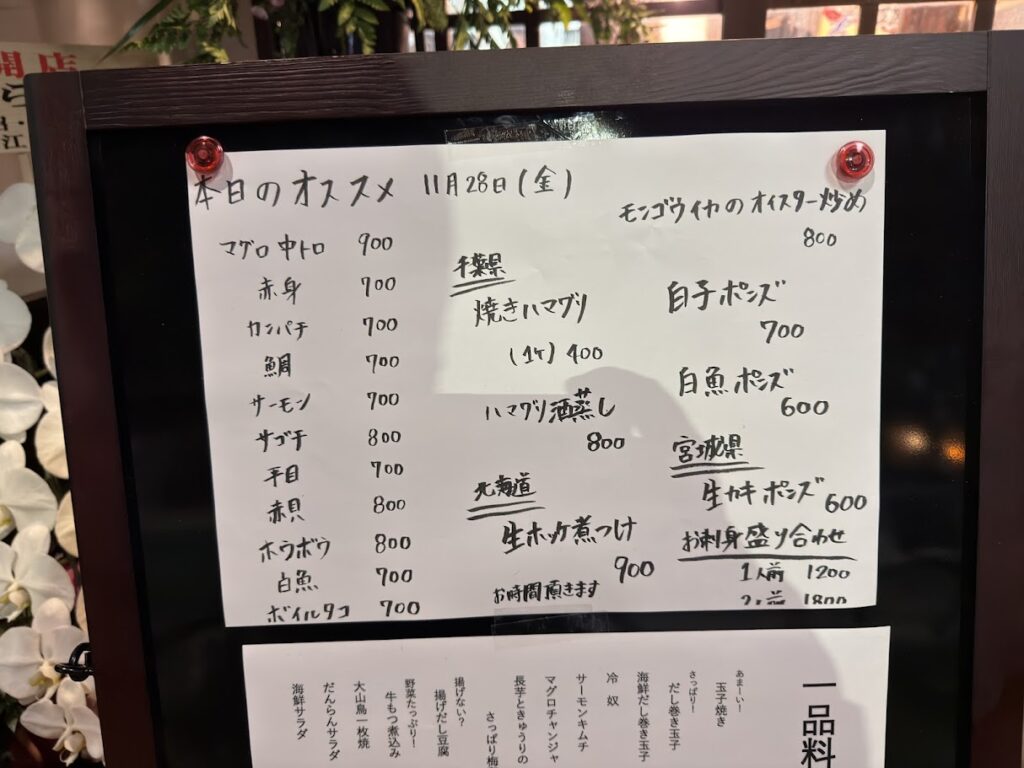 開店
江
本日のオススメ 11月28日(金)
マグロ中トロ 900
赤身 700
カンパチ 700
鯛 700
サーモン 700
サゴチ 800
平目 700
赤貝 800
ホウボウ 800
白魚 700
ボイルタコ 700
千葉県
焼きハマグリ
(1ケ) 400
ハマグリ酒蒸し
800
北海道
生ホッケ煮つけ
900
お時間頂きます
モンゴウイカのオイスター炒め
800
白子ポンズ
700
白魚ポンズ
600
宮城県
生カキポンズ 600
お刺身盛り合わせ
1人前 1200
2人前 1800
一品料
あまーい!
玉子焼き
さっぱり!
だし巻き玉子
海鮮だし巻き玉子
冷奴
サーモンキムチ
マグロチャンジャ
長芋ときゅうりの
さっぱり梅
揚げない?
揚げだし豆腐
野菜たっぷり!
牛もつ煮込み
大山鳥一枚焼
だんらんサラダ
海鮮サラダ